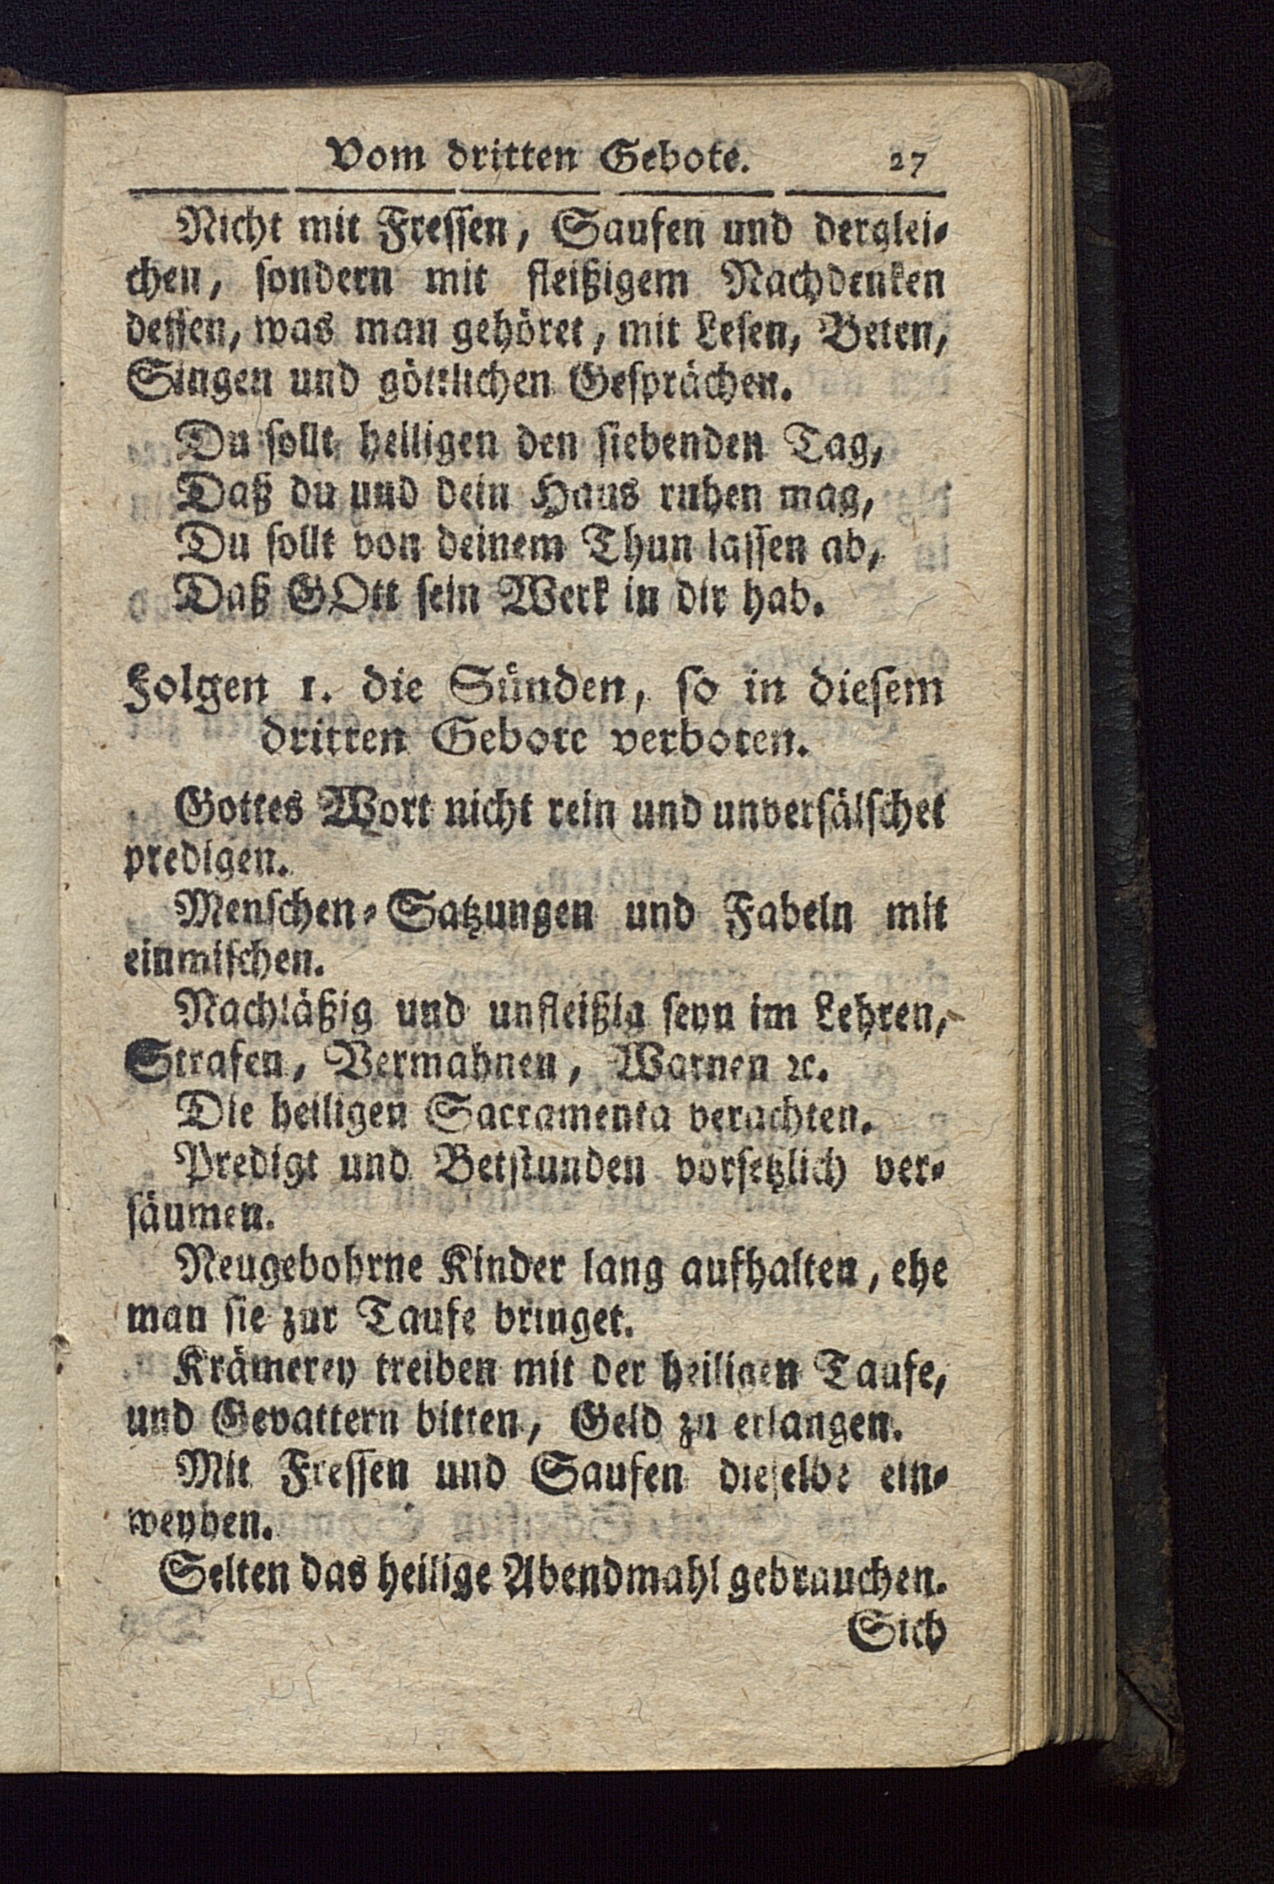 Vom dritten Gebote. 27
Nicht mit Fressen, Saufen und derglei-
chen, sondern mit fleißigem Nachdenken
dessen, was man gehöret, mit Lesen, Beten,
Singen und göttlichen Gesprächen.
Du sollt heiligen den siebenden Tag,
Daß du und dein Haus ruhen mag,
Du sollt von deinem Thun lassen ab,
Daß GOtt sein Werk in dir hab.
Folgen 1. die Sünden, so in diesem
dritten Gebote verboten.
Gottes Wort nicht rein und unverfälschet
predigen.
Menschen-Satzungen und Fabeln mit
einmischen.
Nachläßig und unfleißig seyn im Lehren,
Strafen, Vermahnen, Warnen ꝛc.
Die heiligen Sacramenta verachten.
Predigt und Betstunden vorsetzlich ver-
säumen.
Neugebohrne Kinder lang aufhalten, ehe
man sie zur Taufe bringet.
Krämerey treiben mit der heiligen Taufe,
und Gevattern bitten, Geld zu erlangen.
Mit Fressen und Saufen dieselbe ein-
weyhen.
Selten das heilige Abendmahl gebrauchen.
Sich